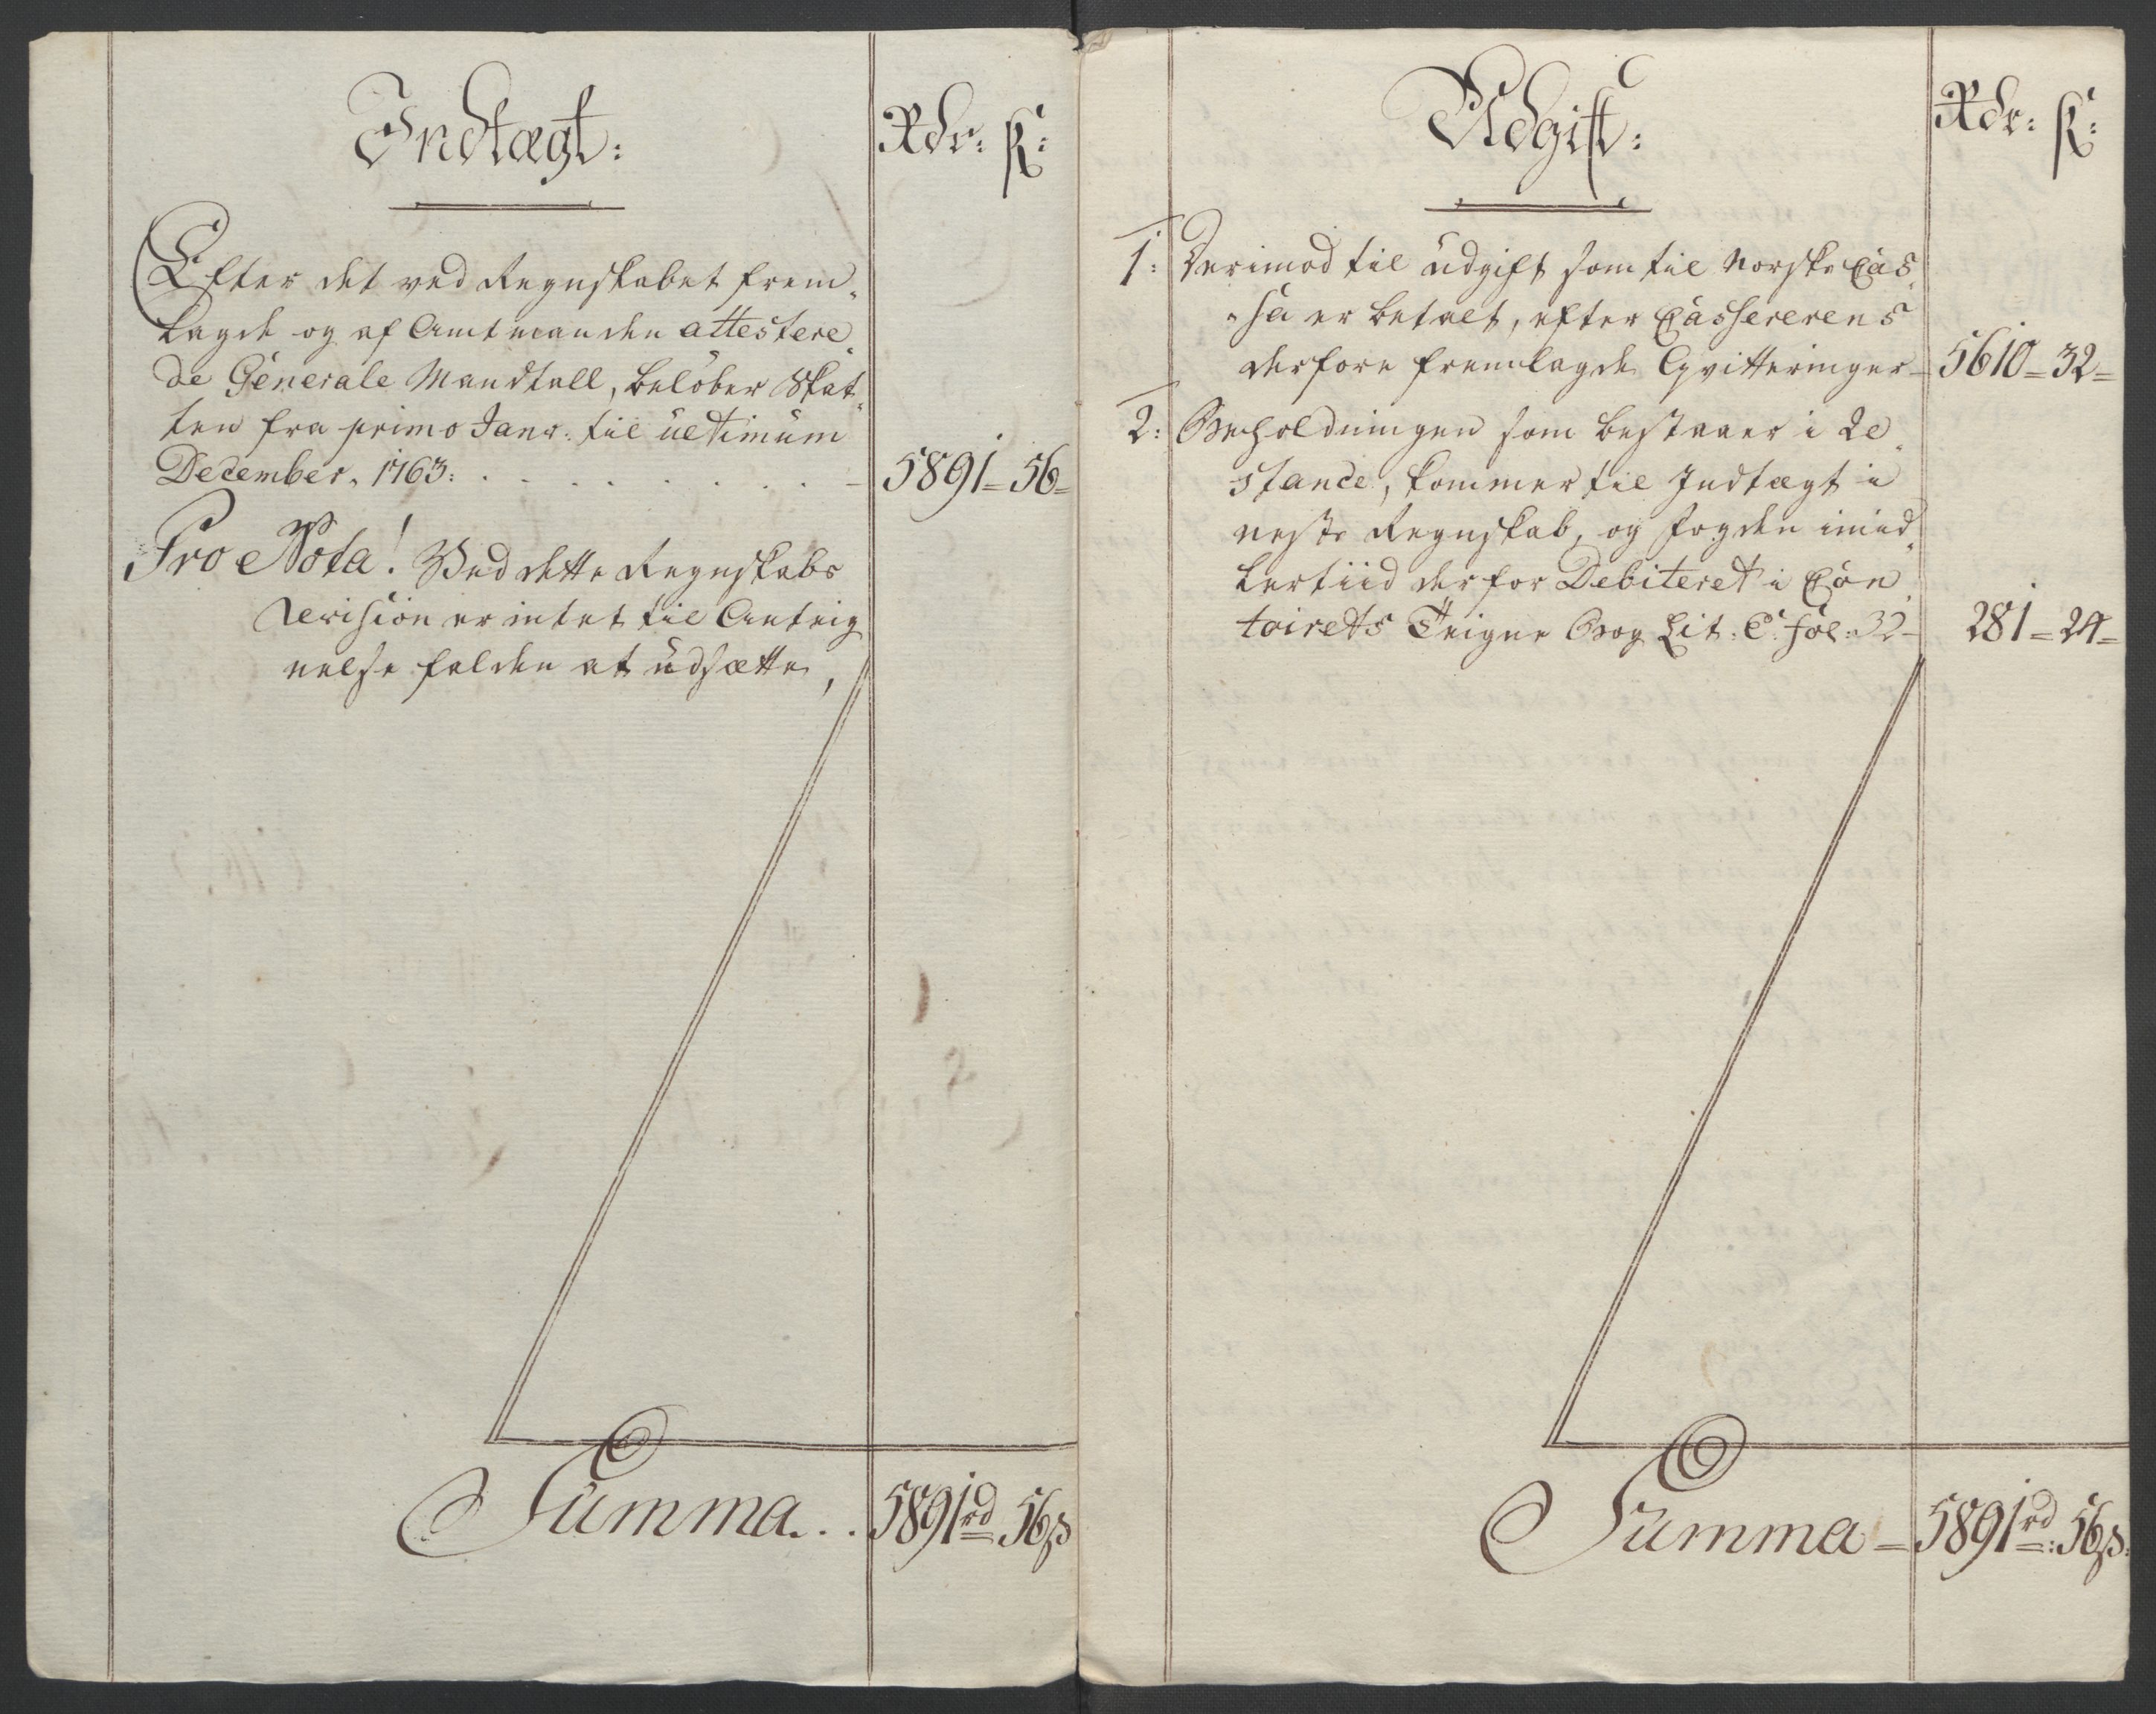 Indtægt:
Rdr: ß:
Efter det ved Regnskabet frem„
lagde og af Amtmanden attestere„
de Generale Mandtall, beløber Skat„
ten fra primo Janr: til ultimum
December, 1763: . . . . . . . . 5891 = 56 =
Pro Nota! Ved dette Regnskabs
Revision er intet til Anteig„
nelse falden at udsætte,
Summa . . . 5891 rd 56 ß
Udgift:
Rdr: ß:
1: Derimod til udgift som til Norske Cas„
„sa er betalt, efter Cassererens
derfore fremlagde Qvitteringer – 5610 = 32 =
2: Beholdningen som bestaaer i Re„
stance, kommer til Indtægt i
neste Regnskab, og Fogden imid„
lertiid derfor Debiteret i Con„
toirets Teigne Bog Lit: C: fol: 32 – 281 = 24 =
Summa = 5891 rd: 56 ß: